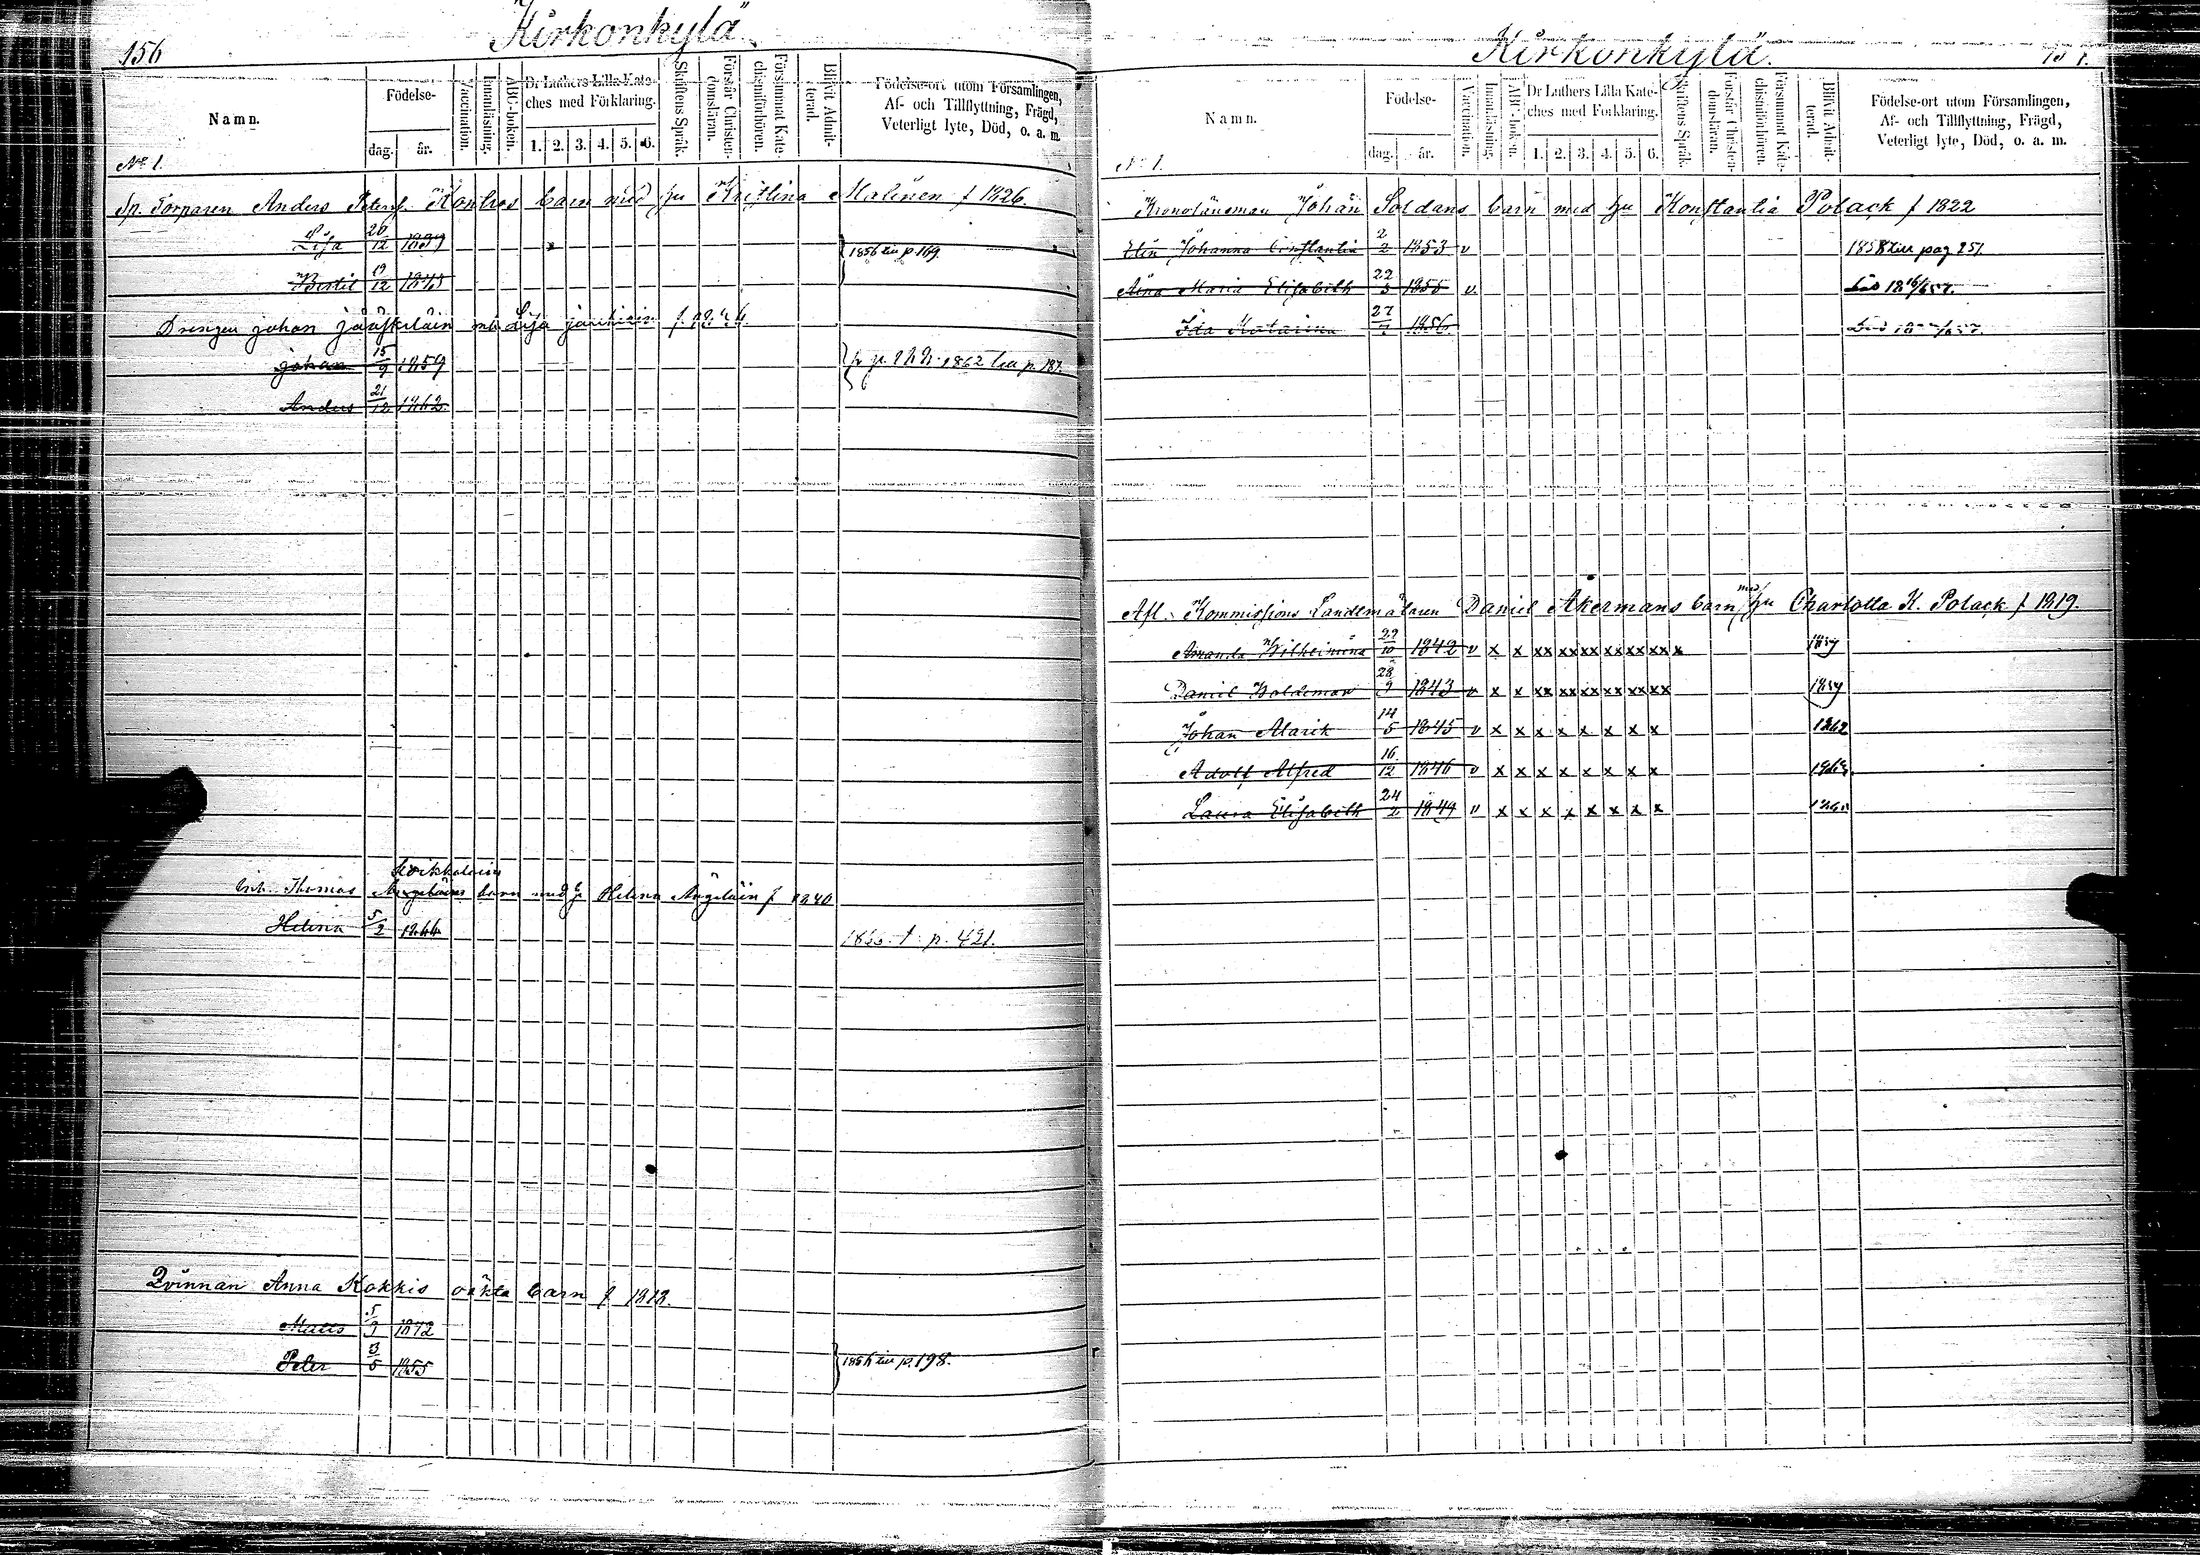 156
Kirkonkylä
Namn.
Födelse-
dag.
år.
Vaccination.
Innanläsning.
ABC-boken.
Dr Luthers Lilla Kate-
ches med Förklaring.
1. 2. 3. 4. 5. 6.
Skriftens Språk.
Förstår Christen-
domsläran.
Försummat Kate-
chismiförhören.
Blifvit Admit-
terad.
Födelse-ort utom Församlingen,
Af- och Tillflyttning, Frägd,
Veterligt lyte, Död, o. a. m.
No 1.
Sp. Torparen Anders Petersf. Kontros barn med hu Kristina Malinen f 1826.
Lisa 20/12 1839
Bertil 19/12 1845 1856 till p. 169
Drengen johan m Lisa
johan 15/9 1859 1862 till p. 187.
Anders 21/12 1862
Koikkalainen
Inh. Thomas barn med h. Helena f 1840
Helena 5/2 1864 1866 t. p. 421.
Qvinnan Anna Kokkis oäkta barn f 1812.
Matts 5/9 1842
Peter 3/5 1855 1856 till p. 198.
Kirkonkylä.
157.
Namn.
Födelse-
dag.
år.
Vaccination.
Innanläsning.
ABC-boken.
Dr Luthers Lilla Kate-
ches med Förklaring.
1. 2. 3. 4. 5. 6.
Skriftens Språk.
Förstår Christen-
domsläran.
Försummat Kate-
chismiförhören.
Blifvit Admit-
terad.
Födelse-ort utom Församlingen,
Af- och Tillflyttning, Frägd,
Veterligt lyte, Död, o. a. m.
No 1.
Kronolänsman Johan Soldans barn med hu Konstantia Polack f 1822
Elin Johanna Constantia 2/2 1853 v 1858 till pag 251.
Aina Maria Elisabeth 22/3 1855 v. Död
Ida Katarina 27/7 1856. Död
Afl. Kommissions Landtmätaren Daniel Åkermans barn med hu Charlotta K. Polack f 1819.
Amanda Wilhelmina 29/10 1842 v x x xx xx xx xx xx xx x 1859
Daniel Woldemar 28/9 1843 v x x xx xx xx xx xx xx 1859
Johan Alarik 14/5 1845 v x x x x x x x x 1862
Adolf Alfred 16/12 1846 v x x x x x x x x
Laura Elisabeth 24/2 1849 v x x x x x x x x